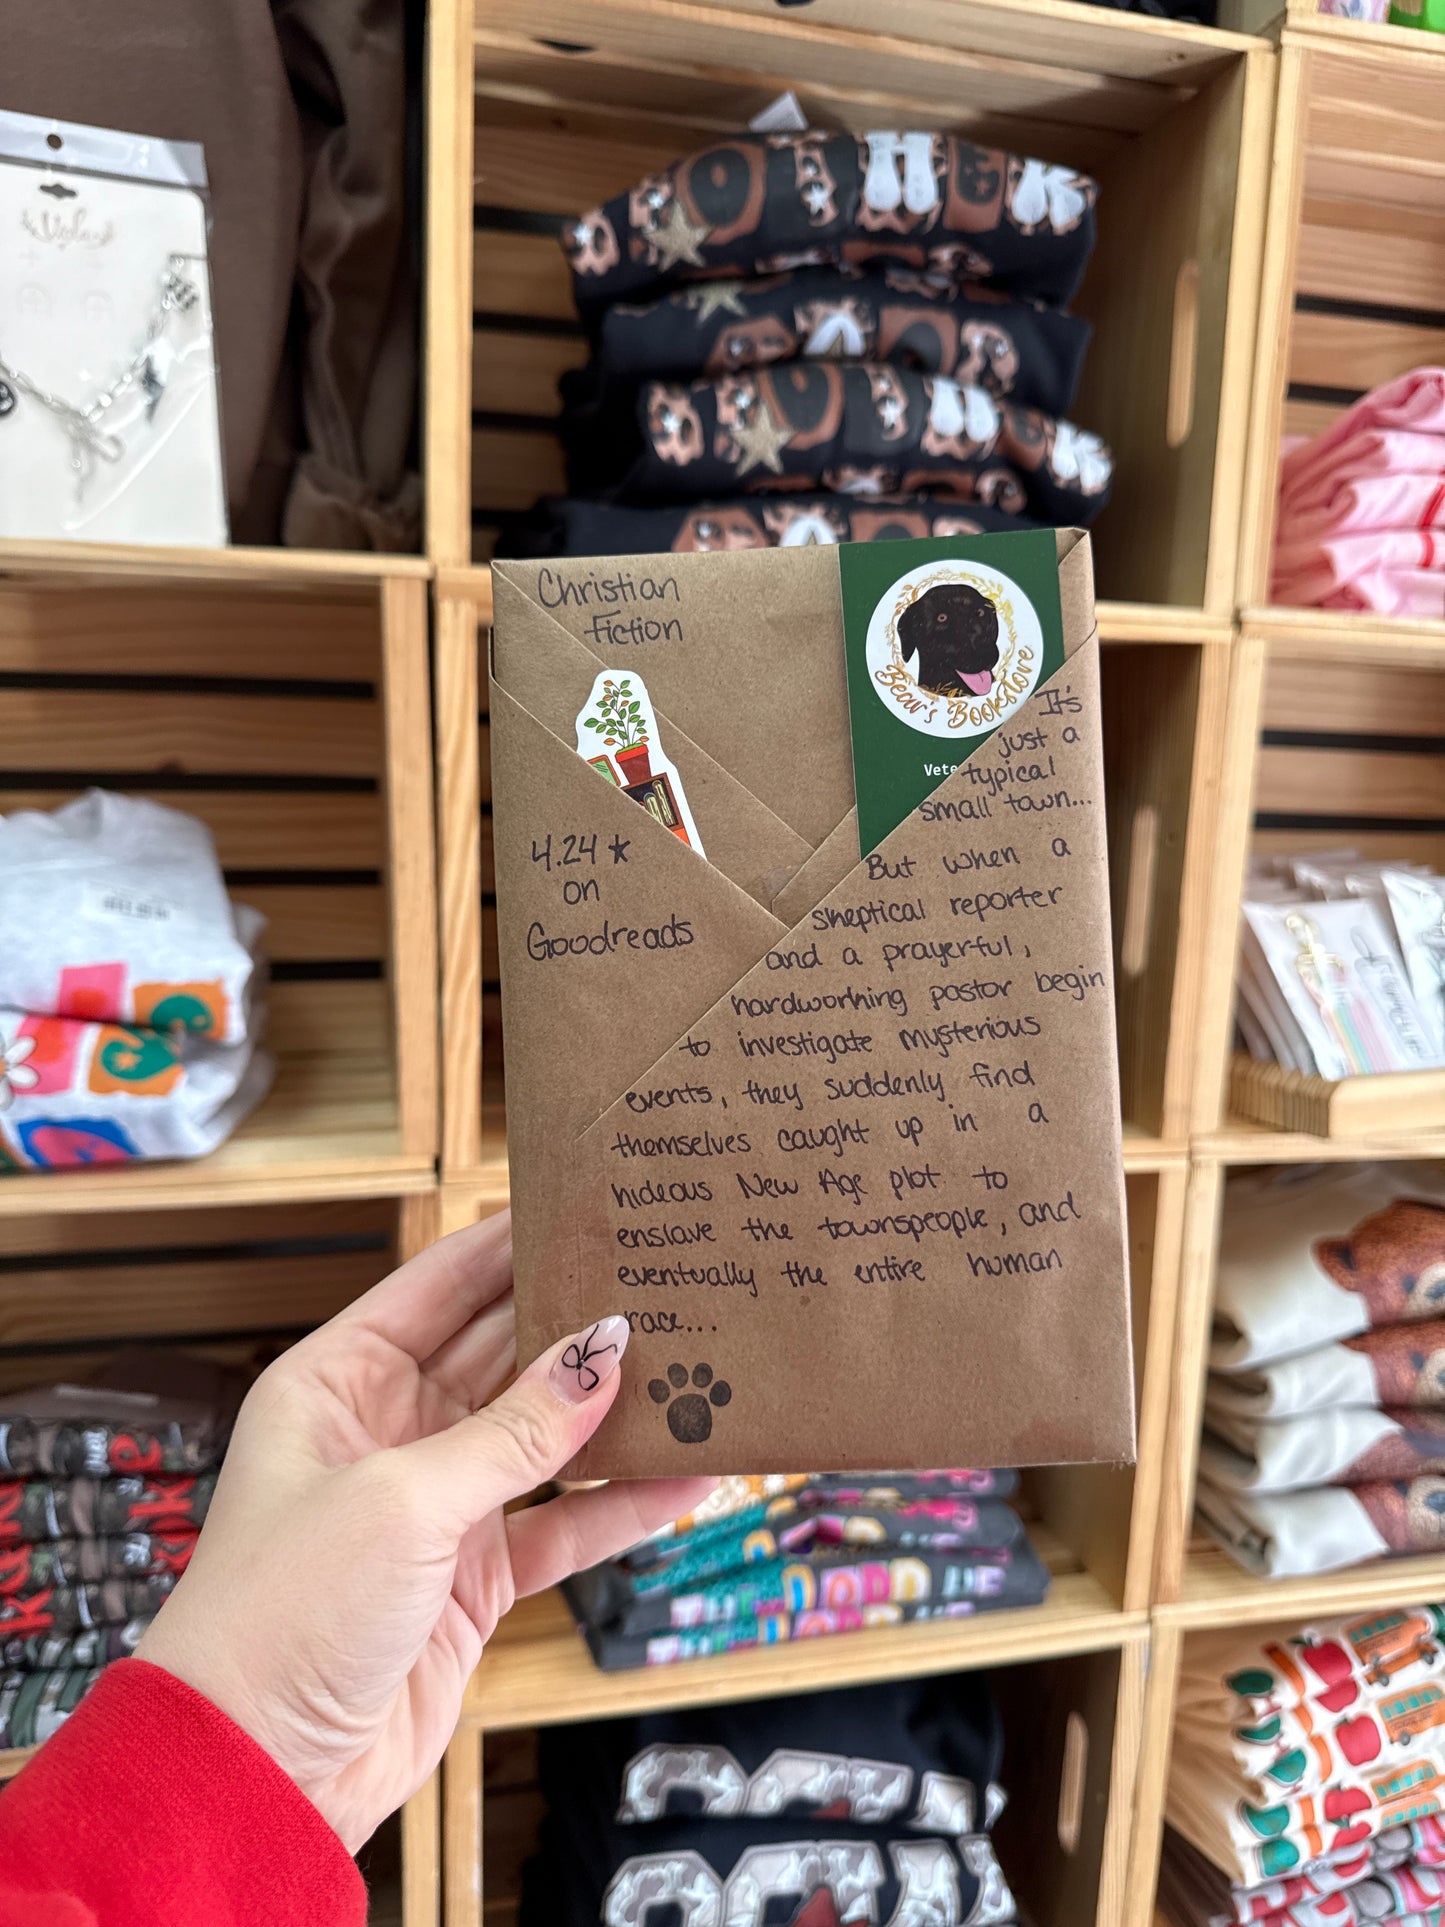 Viola
OTHER
Christian
Fiction
Bear's Bookstore
Vete
4.24 ★
on
Goodreads
It's
just a
typical
small town...
But when a
skeptical reporter
and a prayerful,
hardworking pastor begin
to investigate mysterious
events, they suddenly find
themselves caught up in a
hideous New Age plot to
enslave the townspeople, and
eventually the entire human
race...